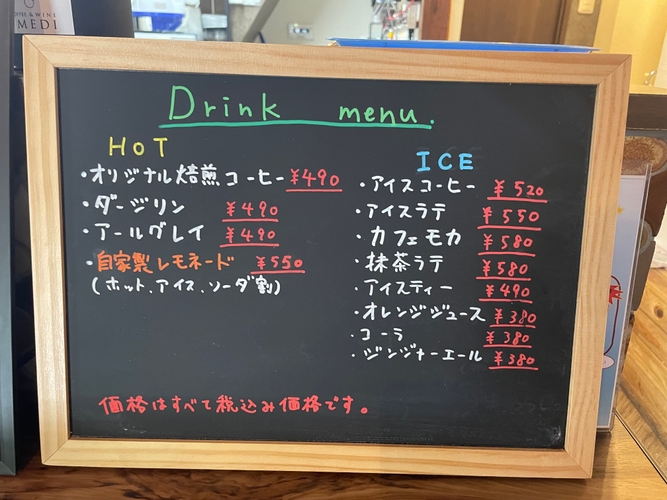 MEDI
Drink menu.
HOT
・オリジナル焙煎コーヒー ¥490
・ダージリン ¥490
・アールグレイ ¥490
・自家製レモネード ¥550
(ホット、アイス、ソーダ割)
ICE
・アイスコーヒー ¥520
・アイスラテ ¥550
・カフェモカ ¥580
・抹茶ラテ ¥580
・アイスティー ¥490
・オレンジジュース ¥380
・コーラ ¥380
・ジンジャーエール ¥380
価格はすべて税込み価格です。